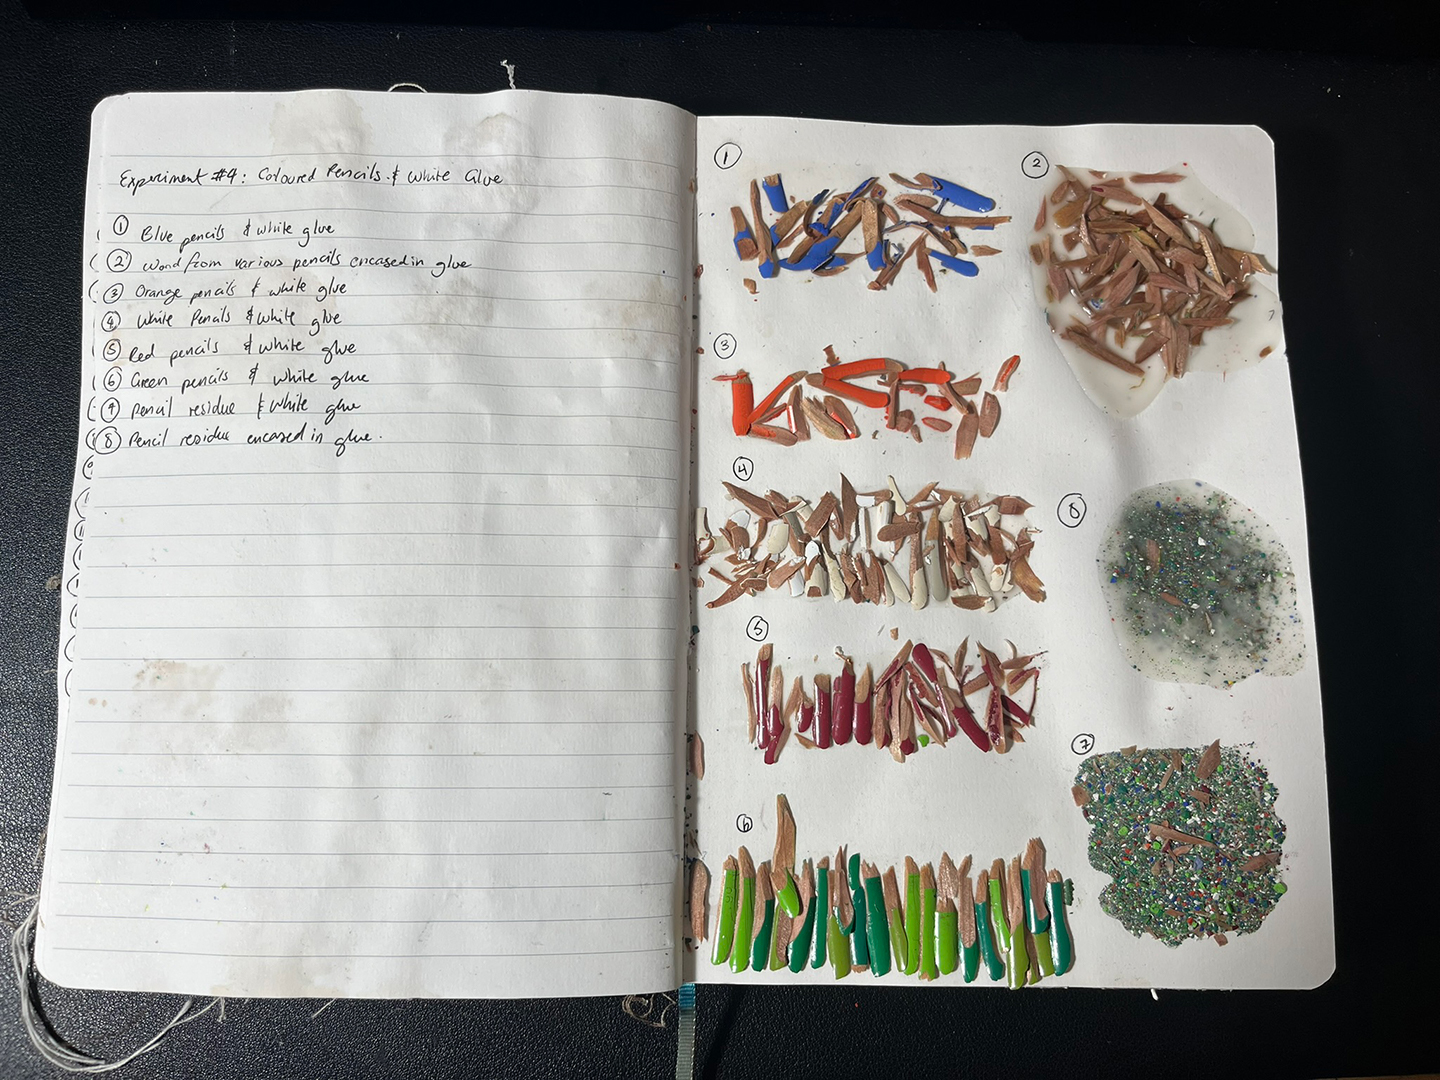 Experiment #4: Coloured Pencils & White Glue
① Blue pencils & white glue
② Wood from various pencils encased in glue
③ Orange pencils & white glue
④ White Pencils & white glue
⑤ Red pencils & white glue
⑥ Green pencils & white glue
⑦ Pencil residue & white glue
⑧ Pencil residue encased in glue.
①
②
③
④
⑧
⑤
⑦
⑥